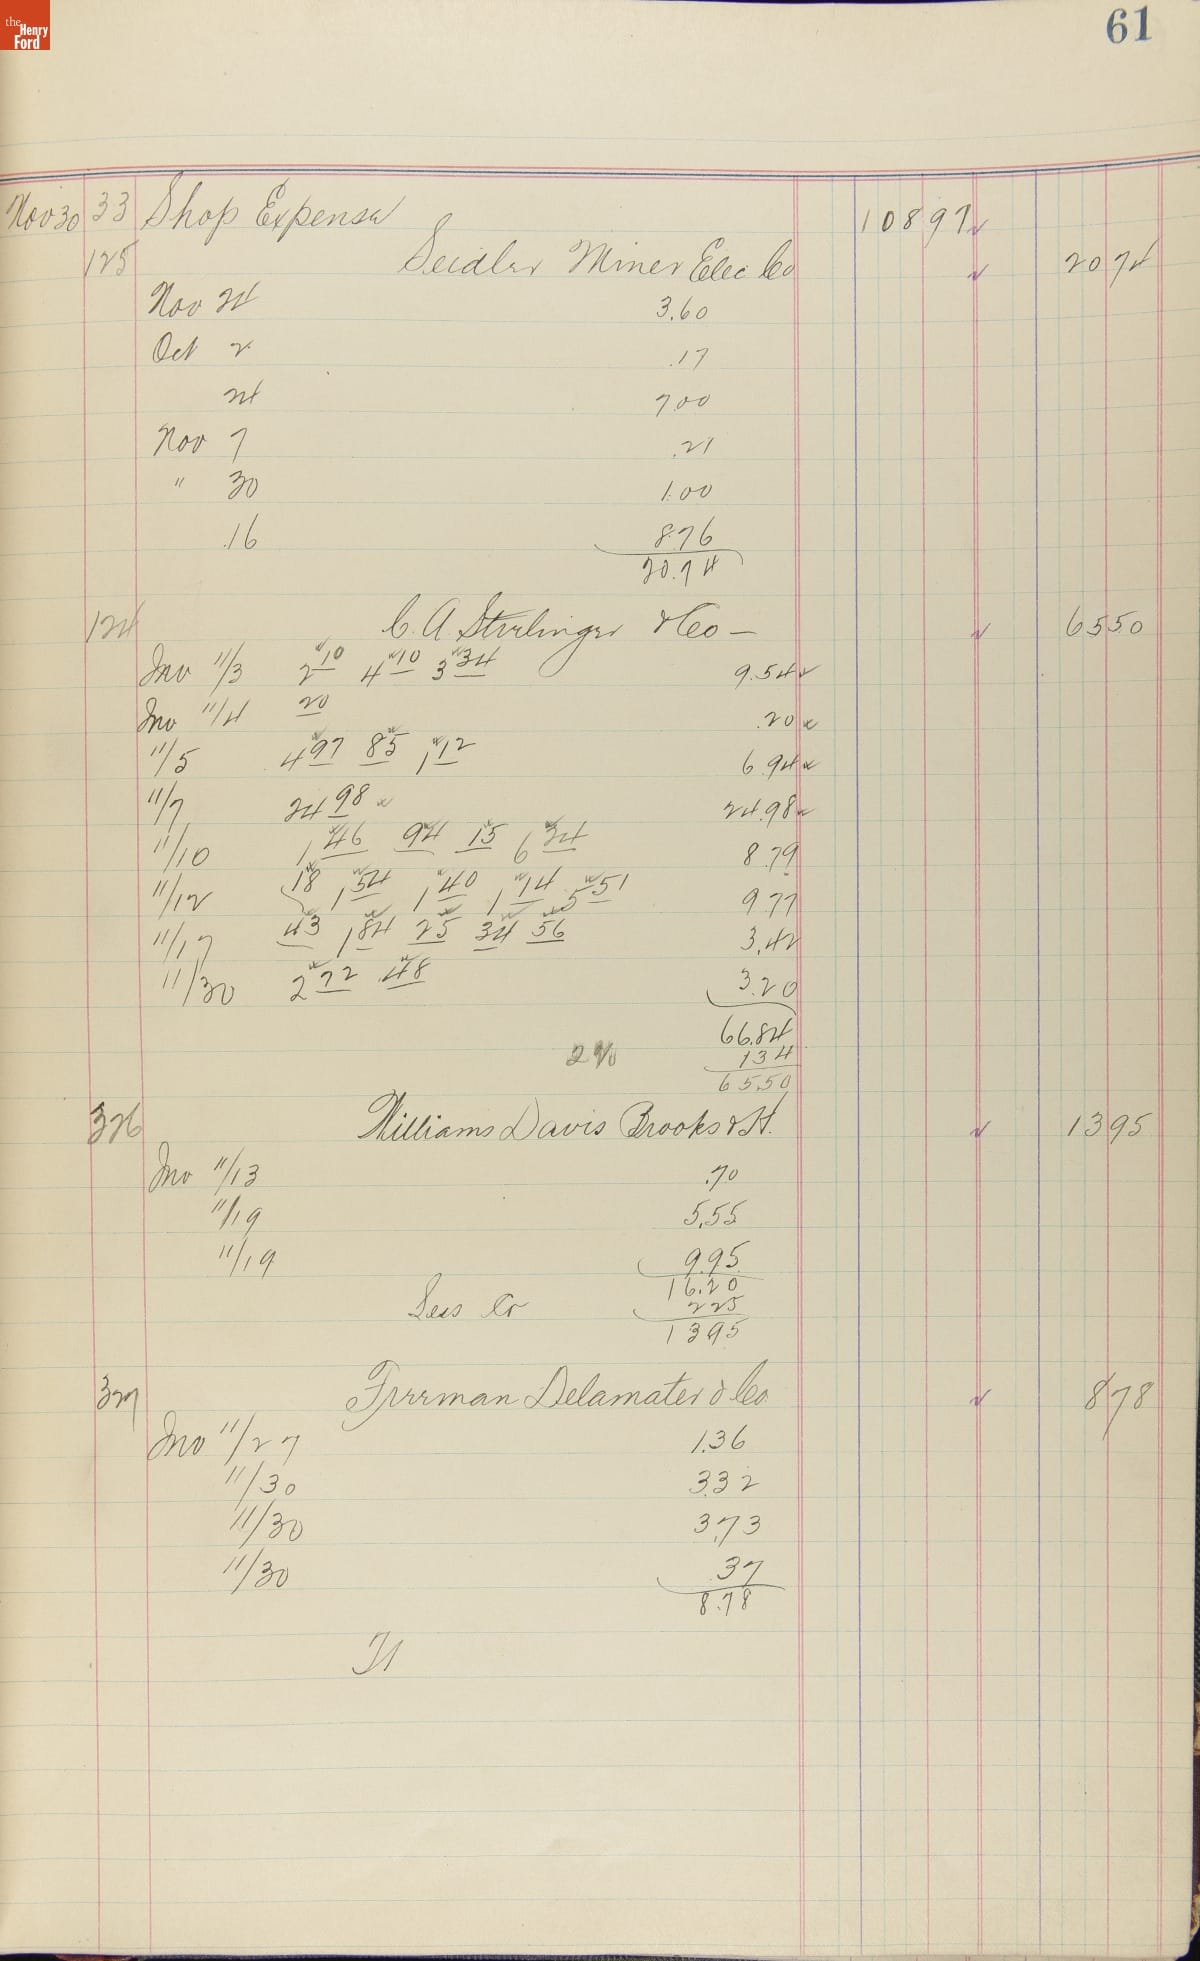 the Henry Ford
61
Nov 30 33 Shop Expense 108 97
125 Seidler Miner Elec Co 20 74
Nov 24 3.60
Oct 2 .17
24 7.00
Nov 7 .21
" 30 1.00
16 8.76
20.74
124 C. A. Strelinger & Co — 65 50
Inv 11/3 2 10 4 10 3 34 9.54
Inv 11/4 20 .20
11/5 4 97 85 1 12 6.94
11/7 24 98 24.98
11/10 1 46 94 15 6 24 8.79
11/12 18 1 54 1 40 1 14 5 51 9.77
11/17 43 1 84 25 34 56 3.42
11/30 2 72 .48 3.20
66.84
2% 1 34
65.50
326 Williams Davis Brooks & H. 13 95
Inv 11/13 .70
11/19 5.55
11/19 9.95
16.20
Less Cr 2 25
13 95
327 Freeman Delamater & Co 8 78
Inv 11/27 1.36
11/30 3.32
11/30 3.73
11/30 .37
8.78